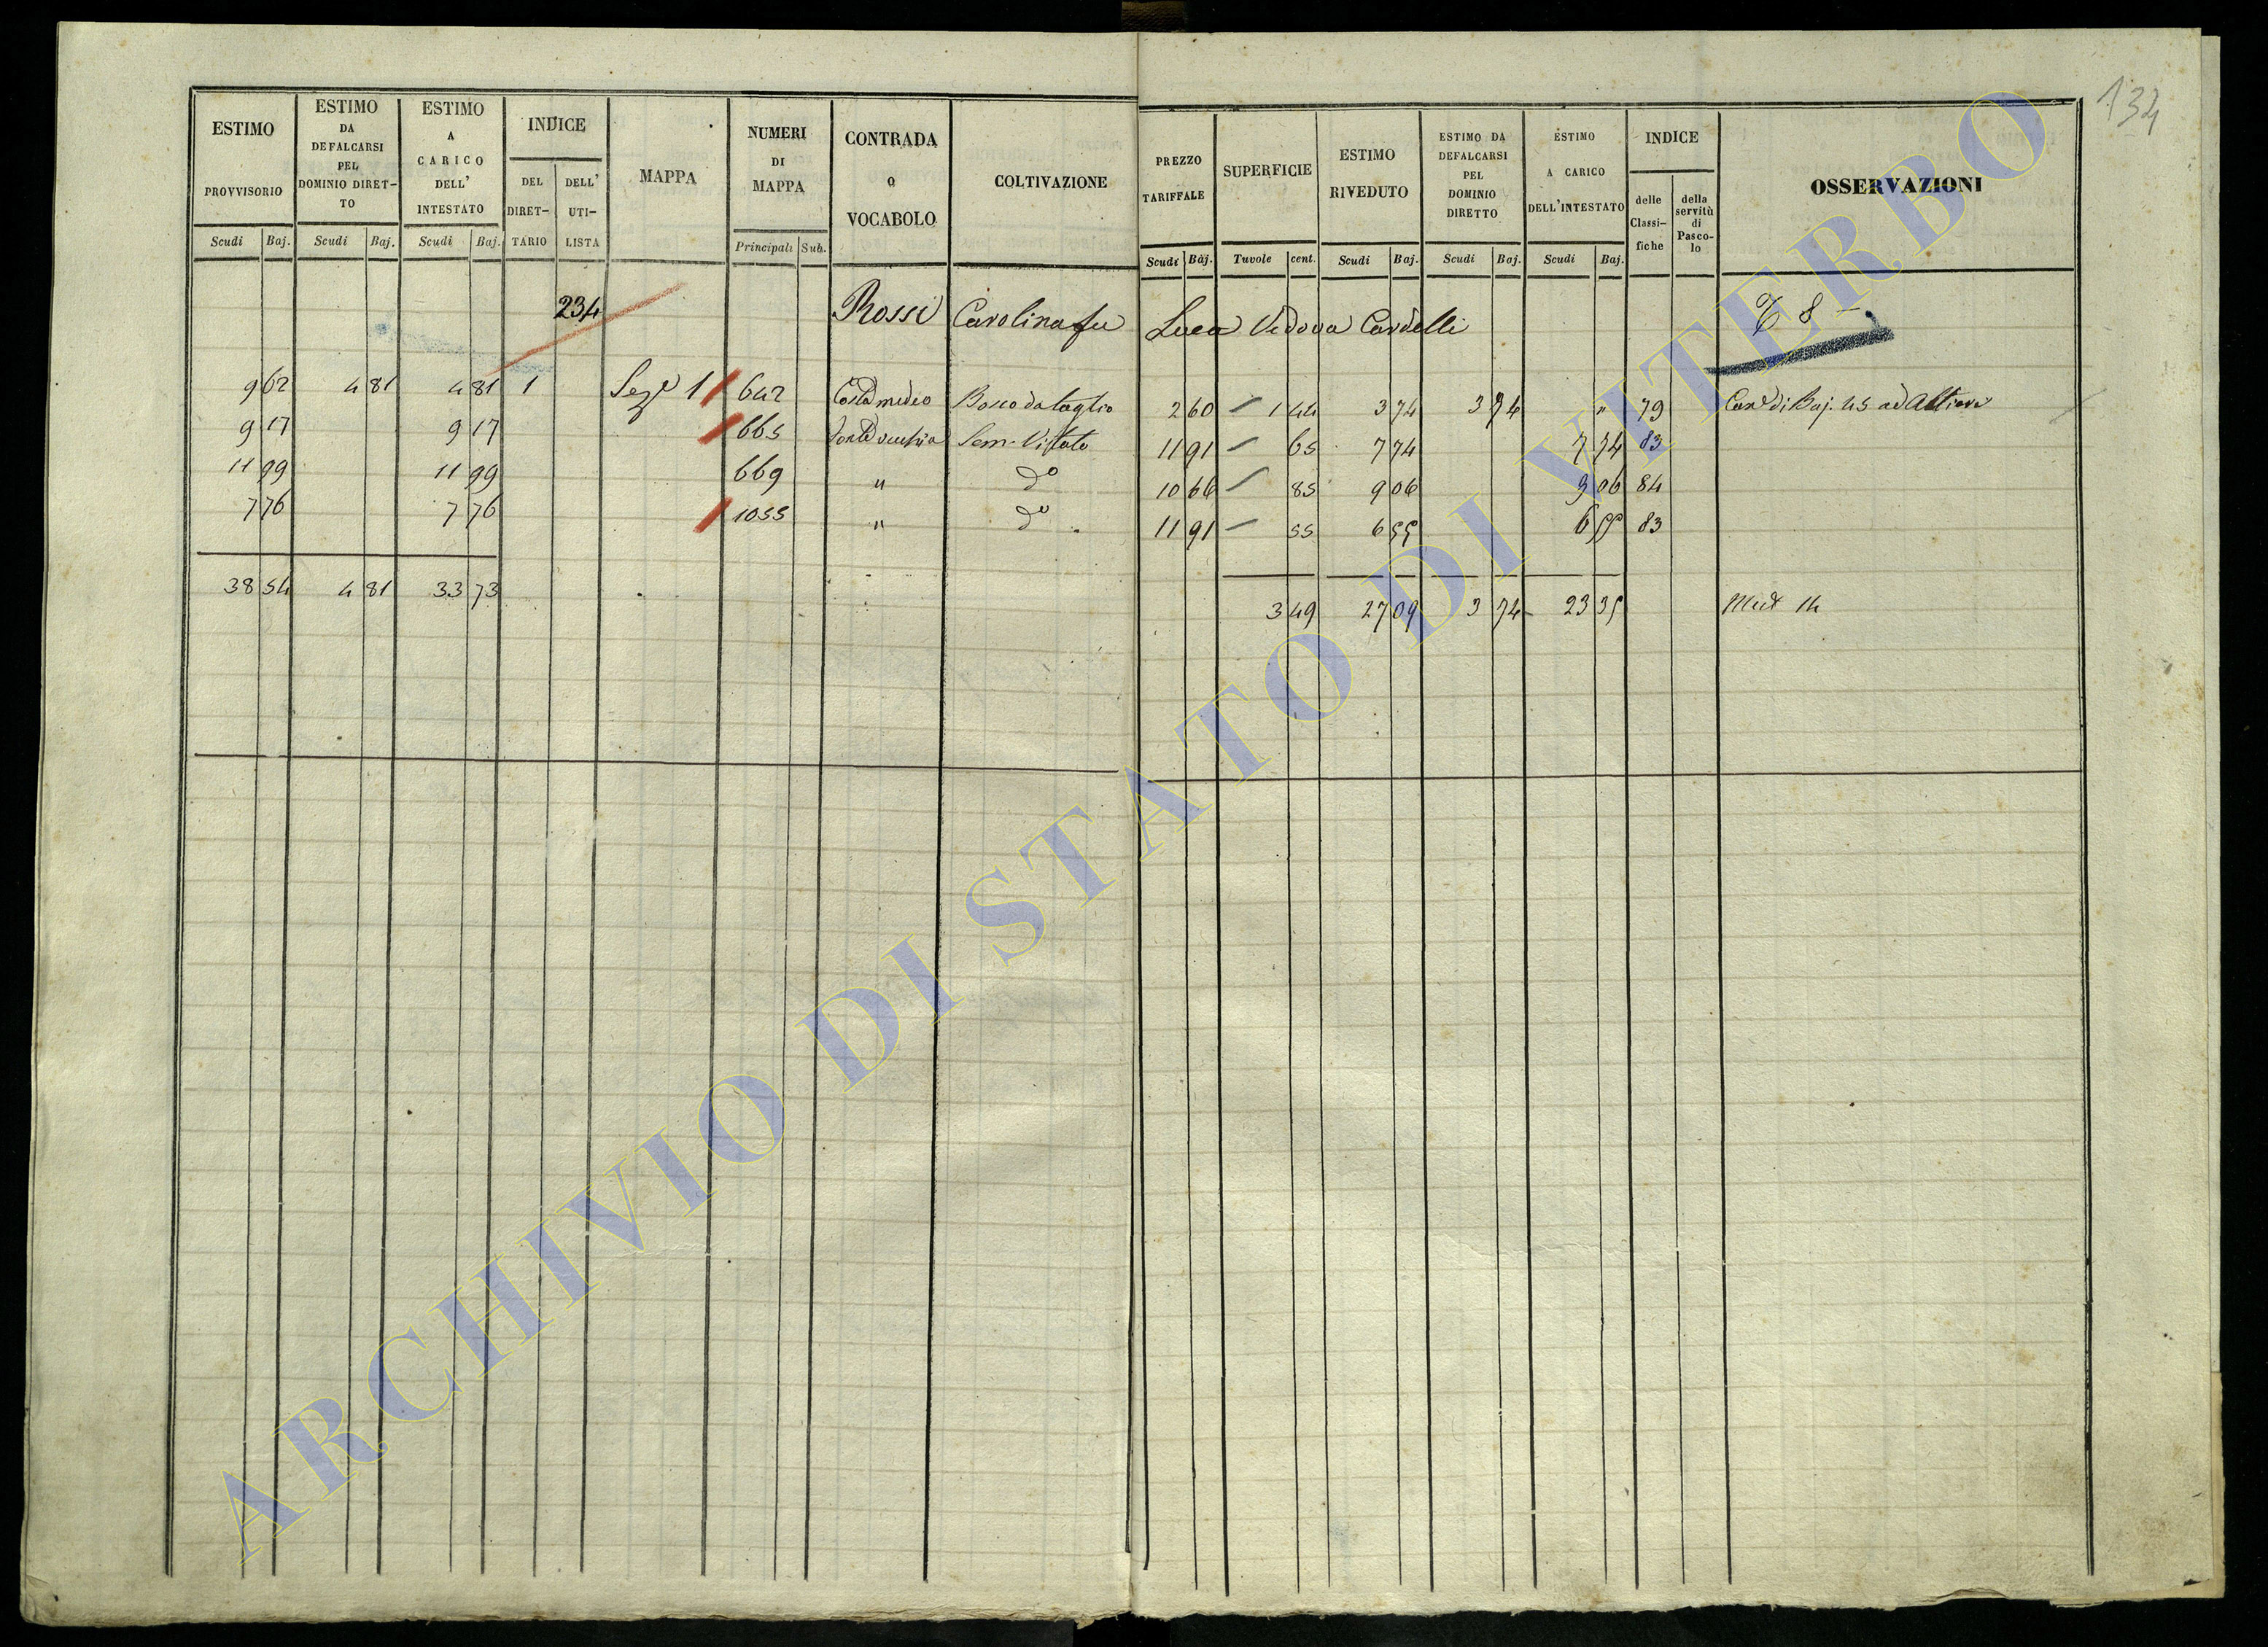 134
ESTIMO PROVVISORIO Scudi Baj.
ESTIMO DA DEFALCARSI PEL DOMINIO DIRET-TO Scudi Baj.
ESTIMO A CARICO DELL' INTESTATO Scudi Baj.
INDICE DEL DIRET-TARIO DELL' UTI-LISTA
MAPPA
NUMERI DI MAPPA Principali Sub.
CONTRADA o VOCABOLO
COLTIVAZIONE
PREZZO TARIFFALE Scudi Baj.
SUPERFICIE Tavole cent.
ESTIMO RIVEDUTO Scudi Baj.
ESTIMO DA DEFALCARSI PEL DOMINIO DIRETTO Scudi Baj.
ESTIMO A CARICO DELL'INTESTATO Scudi Baj.
INDICE delle Classi-fiche della servitù di Pasco-lo
OSSERVAZIONI
234 Rossi Carolina fu Luca Vedova Cardelli 8
9 62 4 81 4 81 1 Sez.e 1 642 Bosco da taglio 2 60 1 44 3 74 3 74 " 79 di Baj. 45 ad Altieri
9 17 9 17 665 Sem. Vitato 11 91 65 7 74 7 74 83
11 99 11 99 669 " do 10 66 85 9 06 9 06 84
7 76 7 76 1055 " do 11 91 55 6 55 6 55 83
38 54 4 81 33 73 3 49 27 09 3 74 23 35 14
ARCHIVIO DI STATO DI VITERBO